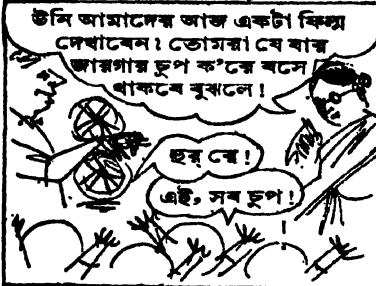 উনি আমাদের আজ একটা ফিল্ম
দেখাবেন। তোমরা যে যার
জায়গায় চুপ ক'রে বসে
থাকবে বুঝলে!
হুর্ রে!
এই, সব চুপ!
!